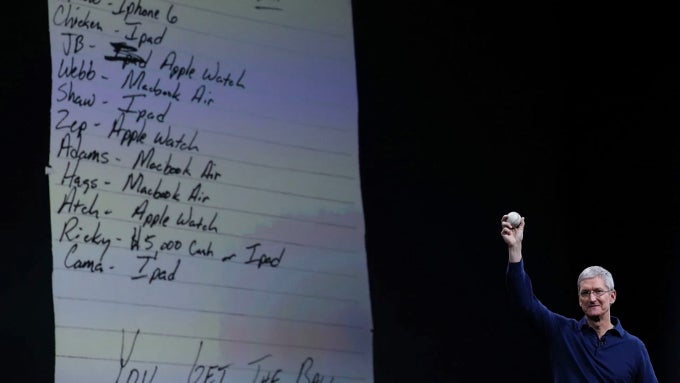 Iphone 6
Chicken - Ipad
JB - Ipad Apple Watch
Webb - Macbook Air
Shaw - Ipad
Zep - Apple Watch
Adams - Macbook Air
Hags - Macbook Air
Atch - Apple Watch
Ricky - $5,000 Cash or Ipad
Cama - Ipad
YOU GET THE BALL